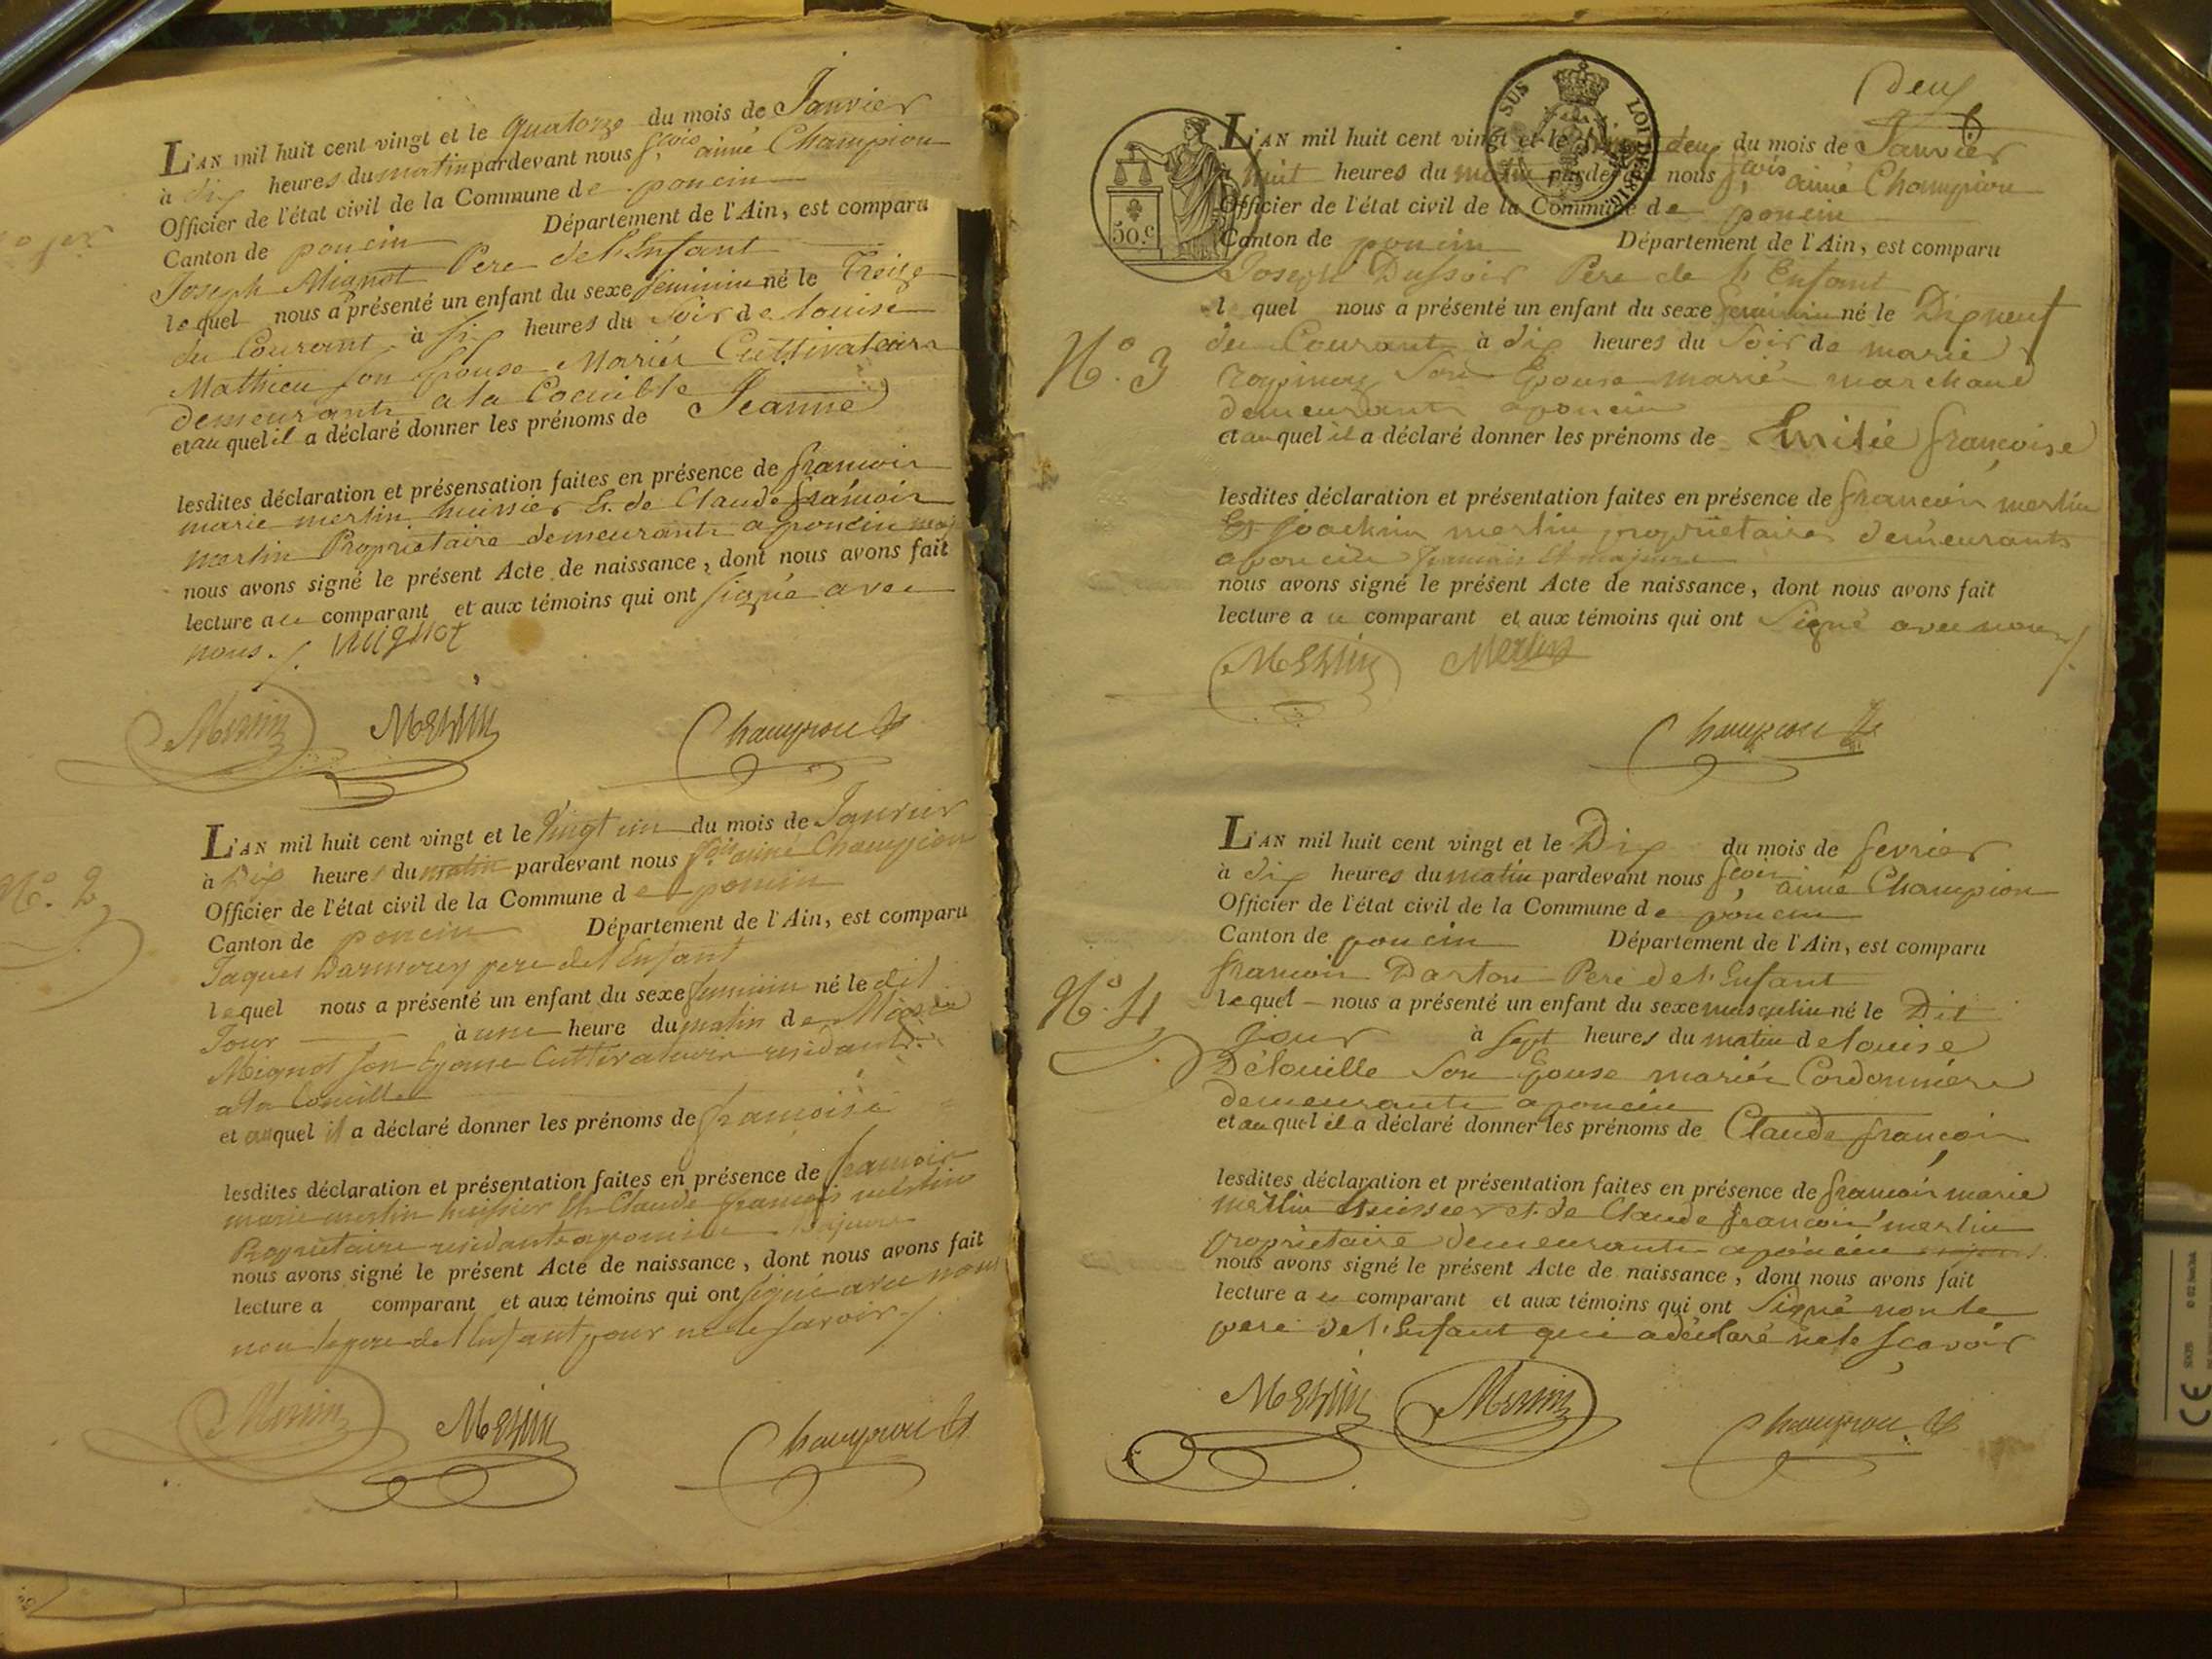 L'AN mil huit cent vingt et le quatorze du mois de Janvier
à dix heures du matin pardevant nous fçois aimé Champion
Officier de l'état civil de la Commune de poncin
Canton de poncin Département de l'Ain, est comparu
Joseph Mignot Pere de l'Enfant
lequel nous a présenté un enfant du sexe feminin né le Treize
du Courant à six heures du Soir de louise
Mathieu son Epouse Mariés Cultivateurs
demeurants a la Coeuille
et au quel il a déclaré donner les prénoms de Jeanne
lesdites déclaration et présensation faites en présence de francois
marie merlin huissier Et de Claude francois
merlin Propriétaire demeurants a poncin maj
nous avons signé le présent Acte de naissance, dont nous avons fait
lecture au comparant et aux témoins qui ont signé avec
nous. Mignot
Merlin Merlin Champion
N.° 2
L'AN mil huit cent vingt et le vingt un du mois de Janvier
à Dix heures du matin pardevant nous fçois aimé Champion
Officier de l'état civil de la Commune de poncin
Canton de poncin Département de l'Ain, est comparu
Jaques pere de l'Enfant
lequel nous a présenté un enfant du sexe feminin né le dit
Jour à une heure du matin de
Mignot son Epouse Cultivateurs residants
a la Coeuille
et auquel il a déclaré donner les prénoms de francoise
lesdites déclaration et présentation faites en présence de francois
marie merlin huissier Et Claude francois merlin
Propriétaire residants a poncin majeurs
nous avons signé le présent Acte de naissance, dont nous avons fait
lecture a comparant et aux témoins qui ont signé avec nous
non le pere de l'Enfant pour ne le savoir
Merlin Merlin Champion
deux
50.c
SUS LOI DE
L'AN mil huit cent vingt et le deux du mois de Janvier
à huit heures du matin pardevant nous fçois aimé Champion
Officier de l'état civil de la Commune de poncin
Canton de poncin Département de l'Ain, est comparu
Joseph Dussoir Pere de l'Enfant
lequel nous a présenté un enfant du sexe feminin né le Dixneuf
N.° 3
du Courant à dix heures du Soir de marie
Son Epouse mariés marchand
demeurants a poncin
et au quel il a déclaré donner les prénoms de Emilie francoise
lesdites déclaration et présentation faites en présence de francois merlin
Et joachim merlin propriétaires demeurants
a poncin francais Et majeurs
nous avons signé le présent Acte de naissance, dont nous avons fait
lecture au comparant et aux témoins qui ont Signé avec nous
Merlin Merlin
Champion
L'AN mil huit cent vingt et le Dix du mois de fevrier
à dix heures du matin pardevant nous fçois aimé Champion
Officier de l'état civil de la Commune de poncin
Canton de poncin Département de l'Ain, est comparu
francois Pere de l'Enfant
N.° 4
lequel nous a présenté un enfant du sexe masculin né le Dit
jour à sept heures du matin de louise
Délouille Son Epouse mariés Cordonniers
demeurants a poncin
et au quel il a déclaré donner les prénoms de Claude françois
lesdites déclaration et présentation faites en présence de francois marie
merlin huissier et de Claude francois merlin
propriétaire demeurants a poncin
nous avons signé le présent Acte de naissance, dont nous avons fait
lecture au comparant et aux témoins qui ont Signé non le
pere de l'Enfant qui a déclaré ne le scavoir
Merlin Merlin Champion
CE